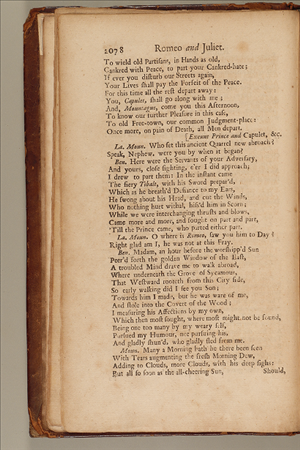 2078 Romeo and Juliet.
To wield old Partisans, in Hands as old,
Cankred with Peace, to part your Cankred-hate;
If ever you disturb our Streets again,
Your Lives shall pay the Forfeit of the Peace.
For this time all the rest depart away:
You, Capulet, shall go along with me;
And, Mountague, come you this Afternoon,
To know our further Pleasure in this case,
To old Free-town, our common Judgment-place:
Once more, on pain of Death, all Men depart.
[Exeunt Prince and Capulet, &c.
La. Moun. Who set this ancient Quarrel new abroach?
Speak, Nephew, were you by when it began?
Ben. Here were the Servants of your Adversary,
And yours, close fighting, e'er I did approach;
I drew to part them: In the instant came
The fiery Tibalt, with his Sword prepar'd,
Which as he breath'd Defiance to my Ears,
He swong about his Head, and cut the Winds,
Who nothing hurt withal, hiss'd him in Scorn;
While we were interchanging thrusts and blows,
Came more and more, and fought on part and part,
'Till the Prince came, who parted either part.
La. Moun. O where is Romeo, saw you him to Day?
Right glad am I, he was not at this Fray.
Ben. Madam, an hour before the worshipp'd Sun
Peer'd forth the golden Window of the East,
A troubled Mind drave me to walk abroad,
Where underneath the Grove of Sycamour,
That Westward rooteth from this City side,
So early walking did I see your Son;
Towards him I made, but he was ware of me,
And stole into the Covert of the Wood;
I measuring his Affections by my own,
Which then most sought, where most might not be found,
Being one too many by my weary self,
Pursued my Humour, not pursuing his,
And gladly shun'd, who gladly fled from me.
Moun. Many a Morning hath he there been seen
With Tears augmenting the fresh Morning Dew,
Adding to Clouds, more Clouds, with his deep sighs:
But all so soon as the all-cheering Sun,
Should,